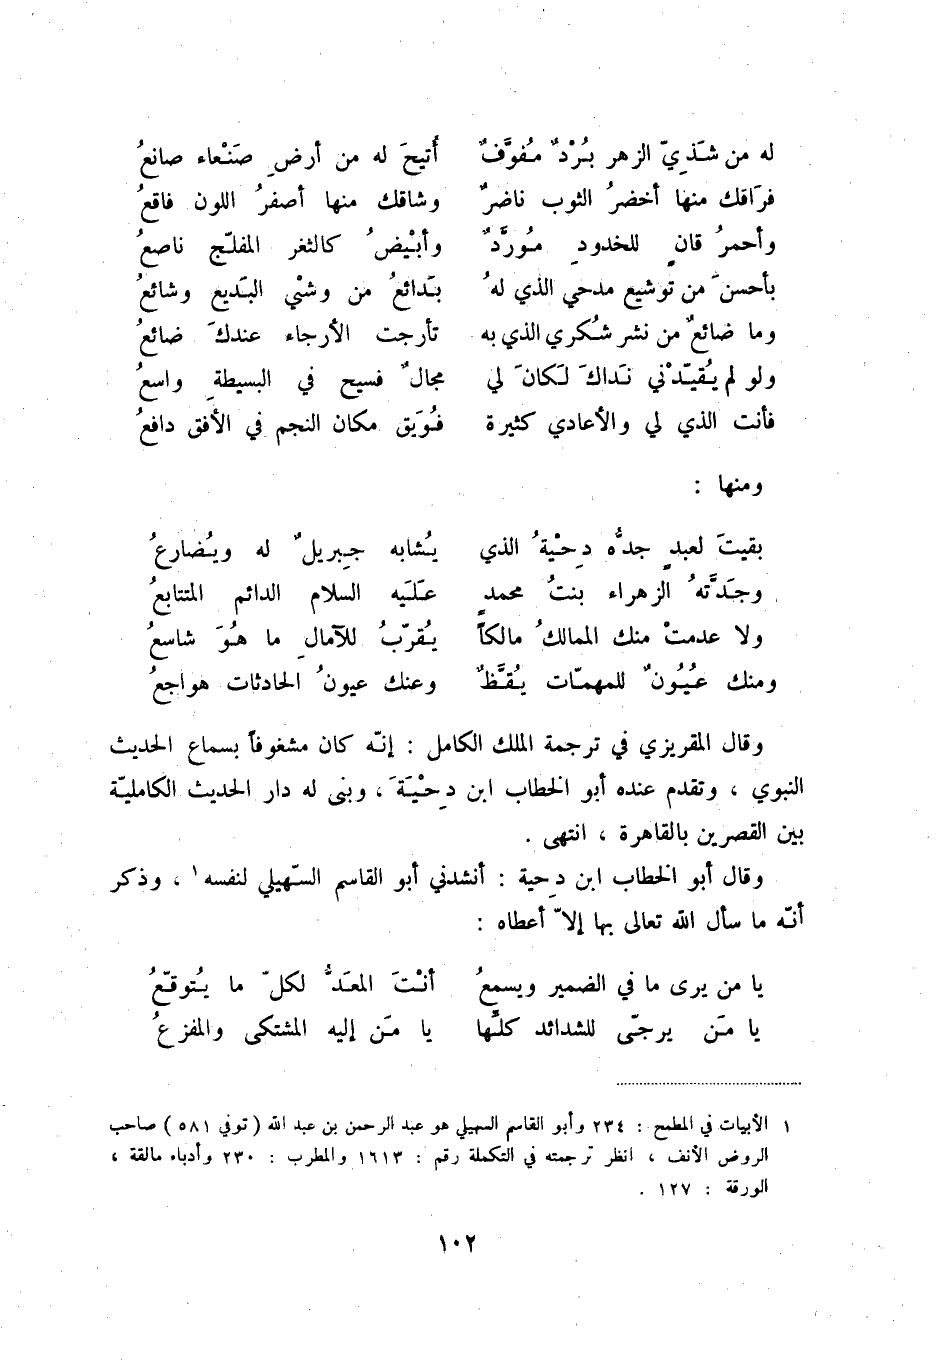 له من شَذيّ الزهر بُرْدٌ مُفوَّفٌ أُتيحَ له من أرضِ صَنْعاء صانعُ
فرَاقك منها أخضرُ الثوب ناضرٌ وشاقك منها أصفرُ اللون فاقعُ
وأحمرُ قانٍ للخدودِ مُورَّدٌ وأبْيضُ كالثغر المفلّج ناصعُ
بأحسنَ من توشيع مدحي الذي لهُ بَدائعُ من وشْي البَديع وشائعُ
وما ضائعٌ من نشر شُكري الذي به تأرجت الأرجاء عندكَ ضائعُ
ولو لم يُقيّدْني نَداكَ لَكانَ لي مجالٌ فسيح في البسيطةِ واسعُ
فأنت الذي لي والأعادي كثيرة فُوَيق مكان النجم في الأفق دافعُ
ومنها :
بقيتَ لعبدٍ جدُّه دِحْيةُ الذي يُشابه جِبريلٌ له ويُضارعُ
وجَدَّتهُ الزهراء بنتُ محمدٍ عَلَيه السلام الدائم المتتابعُ
ولا عدمتْ منك الممالكُ مالكاً يُقرّبُ للآمالِ ما هُوَ شاسعُ
ومنك عُيُونٌ للمهمّات يُقَّظٌ وعنك عيونُ الحادثات هواجعُ
وقال المقريزي في ترجمة الملك الكامل : إنّه كان مشغوفاً بسماع الحديث
النبوي ، وتقدم عنده أبو الخطاب ابن دِحْيَةَ ، وبنى له دار الحديث الكامليّة
بين القصرين بالقاهرة ، انتهى .
وقال أبو الخطاب ابن دِحية : أنشدني أبو القاسم السّهيلي لنفسه ١ ، وذكر
أنّه ما سأل الله تعالى بها إلاّ أعطاه :
يا من يرى ما في الضمير ويسمعُ أنْتَ المعَدُّ لكلّ ما يُتوقّعُ
يا مَن يرجّى للشدائد كلِّها يا مَن إليه المشتكى والمفزعُ
١ الأبيات في المطمح : ٢٣٤ وأبو القاسم السهيلي هو عبد الرحمن بن عبد الله ( توفي ٥٨١ ) صاحب
الروض الأنف ، انظر ترجمته في التكملة رقم : ١٦١٣ والمطرب : ٢٣٠ وأدباء مالقة ،
الورقة : ١٢٧ .
١٠٢